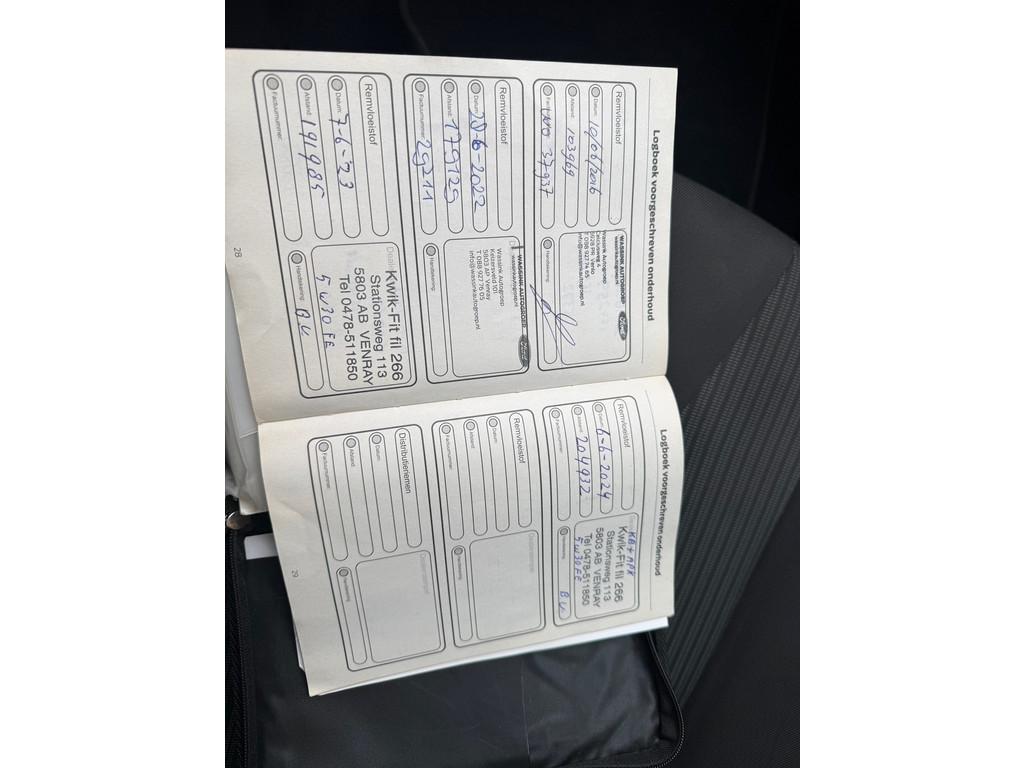 Logboek voorgeschreven onderhoud
Remvloeistof
Datum: 10/06/2016
Afstand: 103969
37937
WASSINK AUTOGROEP
wassinkautogroep.nl
Ford
Wassink Autogroep
Celsiusweg 4
5928 PR Venlo
T 088 9277 4 65
info@wassinkautogroep.nl
Handtekening:
Remvloeistof
Datum: 28-6-2022
Afstand: 179129
Factuurnummer: 29211
WASSINK AUTOGROEP
wassinkautogroep.nl
Ford
Wassink Autogroep
Keizersveld 101
5803 AP Venray
T 088 9277 6 05
info@wassinkautogroep.nl
Handtekening:
Remvloeistof
Datum: 7-6-23
Afstand: 191985
Factuurnummer:
Kwik-Fit fil 266
Stationsweg 113
5803 AB VENRAY
Tel 0478-511850
5W30 FE
Handtekening: B.V.
28
Logboek voorgeschreven onderhoud
Remvloeistof
Datum: 6-6-2024
Afstand: 204932
Factuurnummer:
KB + APK
Kwik-Fit fil 266
Stationsweg 113
5803 AB VENRAY
Tel 0478-511850
5W30 FE
Handtekening: B.V.
Remvloeistof
Datum:
Afstand:
Factuurnummer:
Dealerstempel
Handtekening:
Distributieriemen
Datum:
Afstand:
Factuurnummer:
Dealerstempel
Handtekening:
29